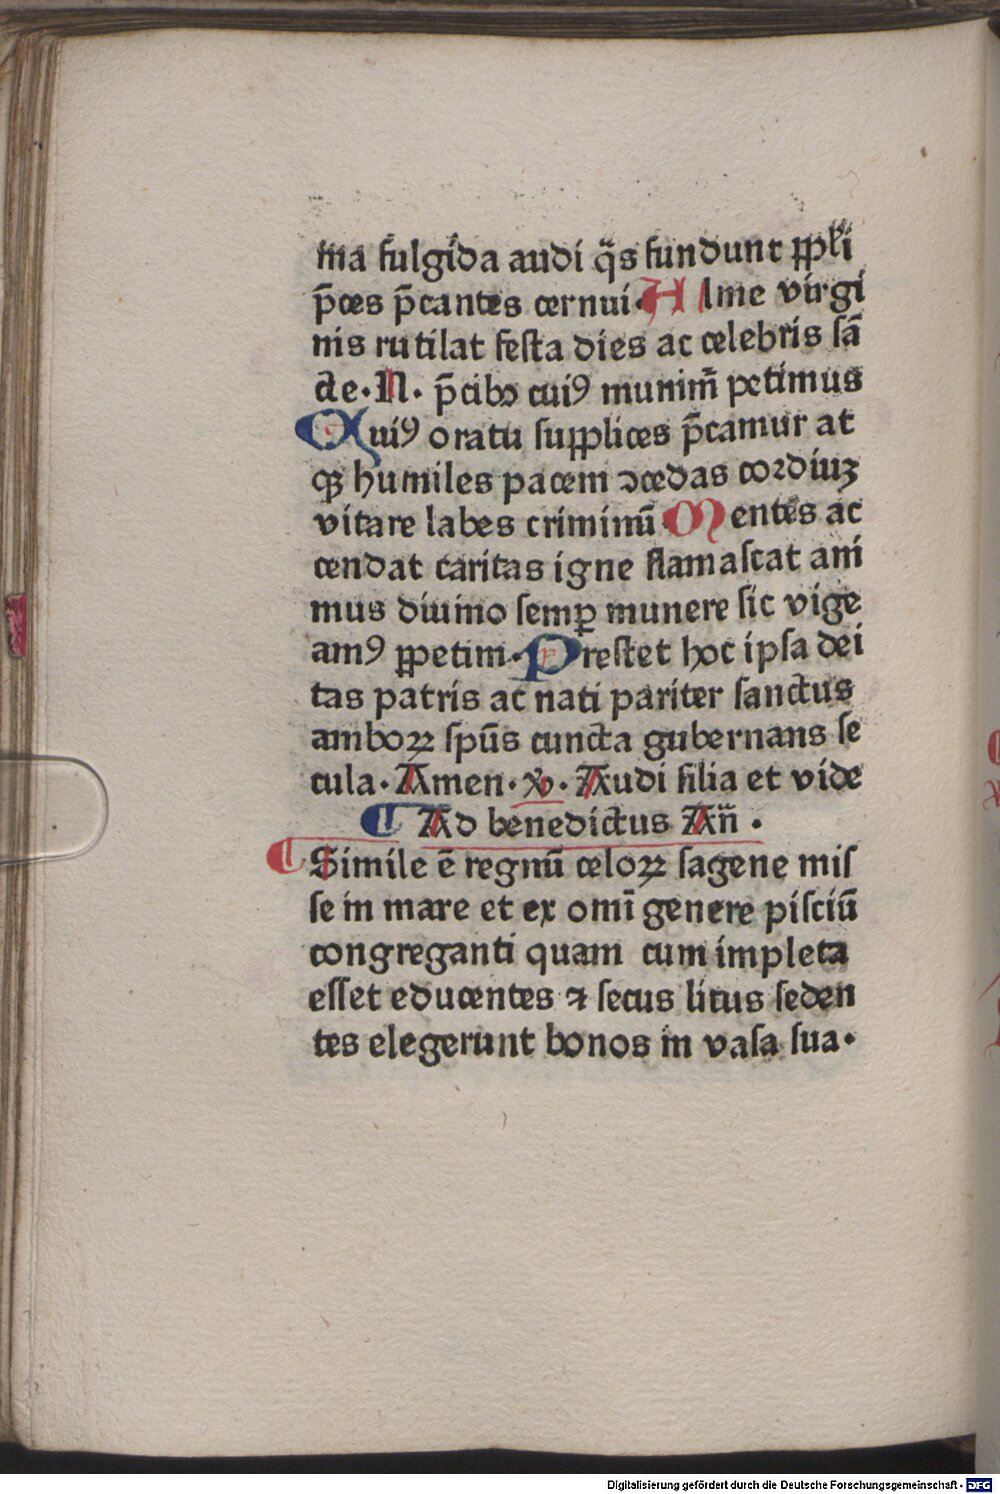 ma fulgida audi q̄s fundunt ꝓpl̄i
p̄ces p̄cantes cernui·Alme virgi
nis rutilat festa dies ac celebris sā
cte·N· p̄cibꝫ cuiꝰ munim̄ petimus
Quiꝰ oratu supplices p̄camur at
qꝫ humiles pacem ↄcedas cordiuꝫ
vitare labes criminū Mentes ac
cendat caritas igne flamascat ani
mus diuino semꝑ munere sic vige
amꝰ ꝑpetim·Prestet hoc ipsa dei
tas patris ac nati pariter sanctus
amboꝝ spūs cuncta gubernans se
cula·Amen·℣·Audi filia et vide
¶ Ad benedictus An̄ ·
¶ Simile ē regnū celoꝝ sagene mis
se in mare et ex omī genere pisciū
congreganti quam cum impleta
esset educentes ⁊ secus litus seden
tes elegerunt bonos in vasa sua·
Digitalisierung gefördert durch die Deutsche Forschungsgemeinschaft - DFG